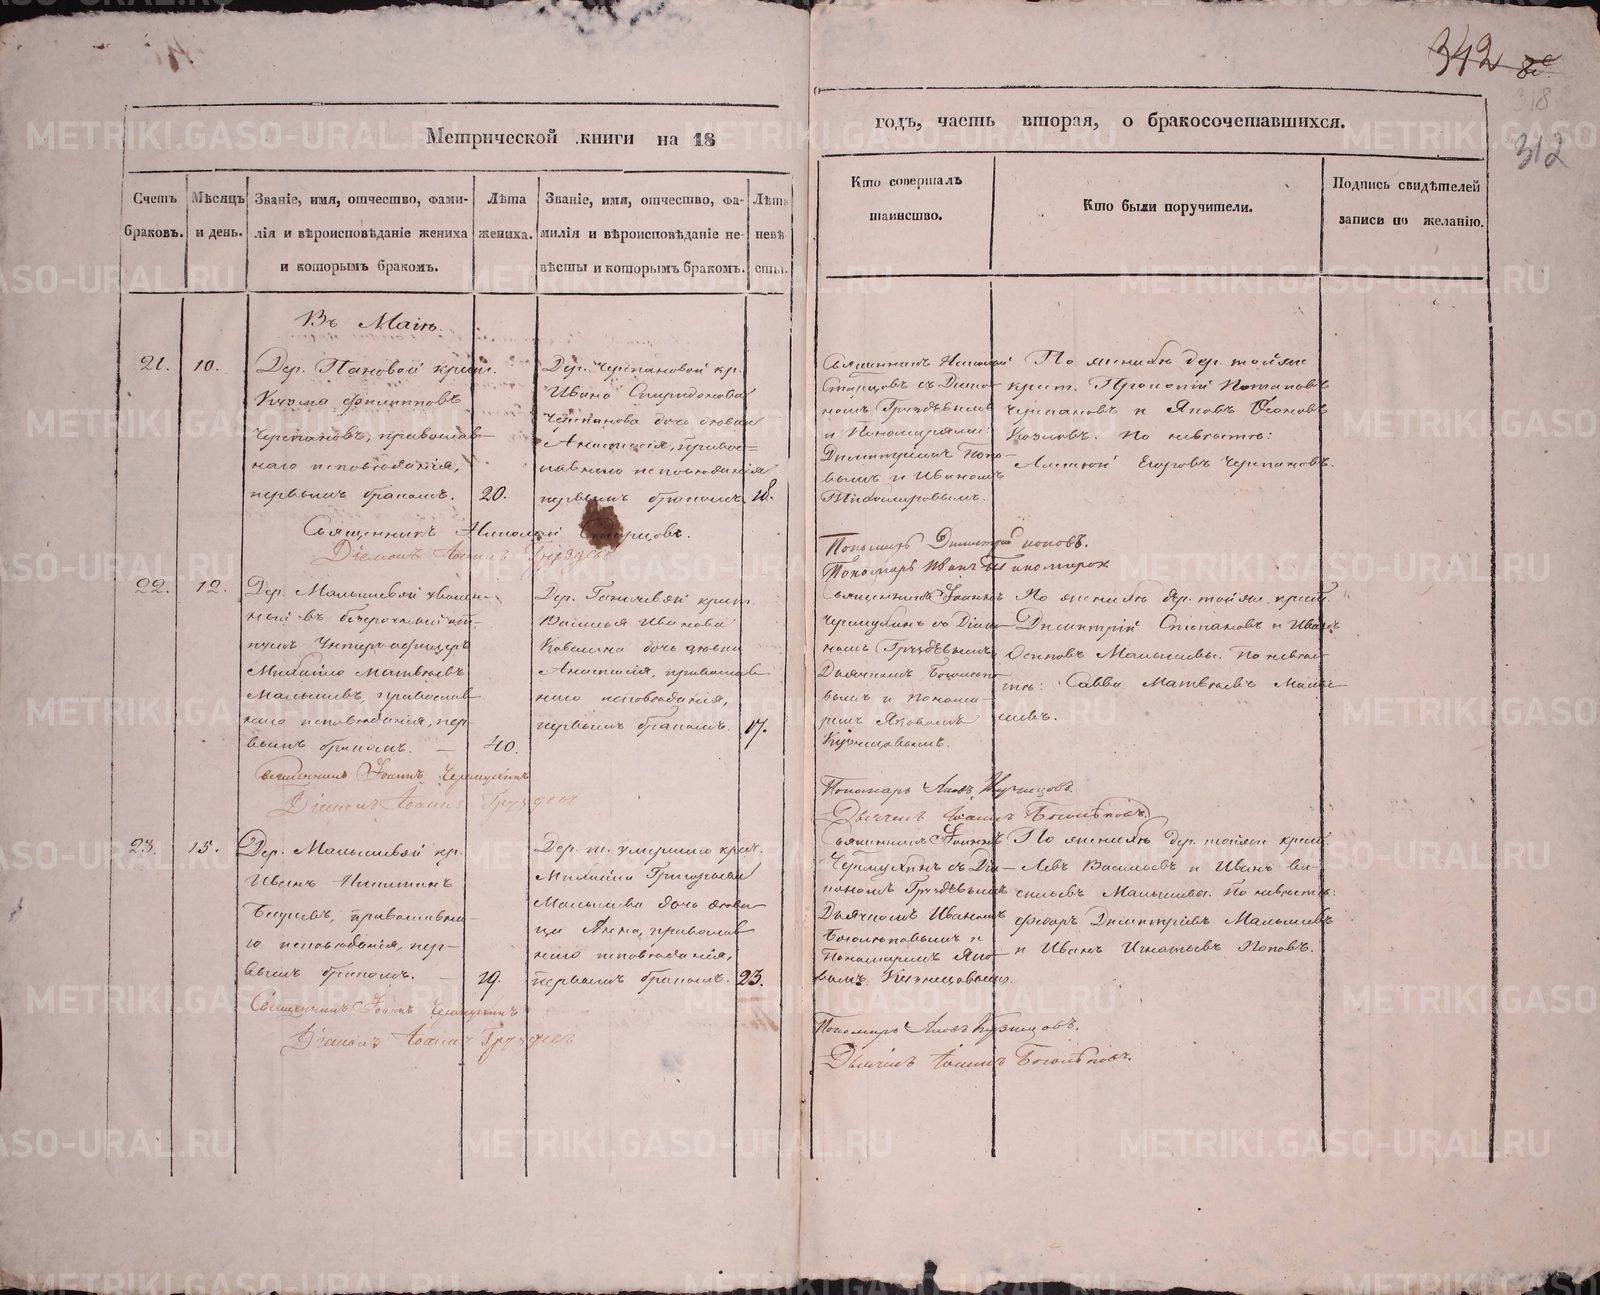 342
318
312
Метрической книги на 18
годъ, часть вторая, о бракосочетавшихся.
Счетъ браковъ.
Мѣсяцъ и день.
Званіе, имя, отчество, фами-
лія и вѣроисповѣданіе жениха
и которымъ бракомъ.
Лѣта жениха.
Званіе, имя, отчество, фа-
милія и вѣроисповѣданіе не-
вѣсты и которымъ бракомъ.
Лѣта невѣ
сты.
Кто совершалъ
таинство.
Кто были поручители.
Подпись свидѣтелей
записи по желанію.
Въ Маіѣ.
21.
10.
Дер. Пановой крест.
Кузма Филипповъ
Черепановъ, православ-
наго исповѣданія,
первымъ бракомъ.
20.
Дер. Черепановой кр.
Ивана Спиридонова
Черепанова дочь дѣвица
Анастасія, правос-
лавнаго исповѣданія
первымъ бракомъ.
18.
Священникъ Николай
Старцовъ съ Діако-
номъ Груздѣвымъ
и Пономарями:
Димитріемъ Попо-
вымъ и Иваномъ
Тихомировымъ.
По женихѣ дер. тойже
крест. Прокопій Потаповъ
Черепановъ и Яковъ
Козловъ. По невѣстѣ:
Алексѣй Егоровъ Черепановъ.
Священникъ Николай Старцовъ.
Діаконъ Іоаннъ Груздевъ
Пономарь Димитрій Поповъ.
Пономарь Иванъ Тихомиров
22.
12.
Дер. Малышевой уволен-
ный въ безсрочный от-
пускъ Унтеръ-офицеръ
Михайло Матвѣевъ
Малышевъ, православ-
наго исповѣданія, пер-
вымъ бракомъ.
40.
Дер. крест.
Василья Иванова
дочь дѣвица
Анастасія, православ
наго исповѣданія,
первымъ бракомъ.
17.
Священникъ Іоаннъ
Черемухинъ съ Діако-
номъ Груздѣвымъ
Дьячкомъ Боголѣпо-
вымъ и Понома-
ремъ Яковомъ
Кузнецовымъ.
По женихѣ дер. тойже крест.
Димитрій Степановъ и Иванъ
Осиповъ Малышевы. По невѣс-
тѣ: Савва Матвѣевъ Малы-
шевъ.
Священникъ Іоаннъ Черемухинъ
Діаконъ Іоаннъ Груздевъ
Пономарь Яковъ Кузнецовъ.
Дьячекъ Іоаннъ Боголѣповъ.
23.
15.
Дер. Малышевой кр.
Иванъ Никитинъ
православна-
го исповѣданія, пер-
вымъ бракомъ.
19.
Дер. т. умершаго крест.
Михайла Григорьева
Малышева дочь дѣви-
ца Анна, православ
наго исповѣданія,
первымъ бракомъ.
23.
Священникъ Іоаннъ
Черемухинъ съ Діа-
кономъ Груздѣвымъ
Дьячкомъ Иваномъ
Боголѣповымъ и
Пономаремъ Яко-
вомъ Кузнецовымъ.
По женихѣ дер. тойже крест.
Левъ Васильевъ и Иванъ Ва-
сильевъ Малышевы. По невѣстѣ:
Федоръ Димитріевъ Малышевъ
и Иванъ Игнатьевъ Поповъ.
Священникъ Іоаннъ Черемухинъ
Діаконъ Іоаннъ Груздев
Пономарь Яковъ Кузнецовъ.
Дьячекъ Іоаннъ Боголѣповъ.
METRIKI.GASO-URAL.RU